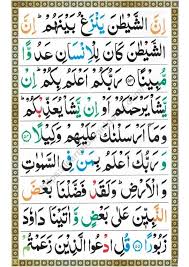 اِنَّ الشَّيْطٰنَ يَنْزَغُ بَيْنَهُمْ ؕ اِنَّ
الشَّيْطٰنَ كَانَ لِلْاِنْسَانِ عَدُوًّا
مُّبِيْنًا ﴿۵۳﴾ رَبُّكُمْ اَعْلَمُ بِكُمْ ؕ اِنْ
يَّشَاْ يَرْحَمْكُمْ اَوْ اِنْ يَّشَاْ يُعَذِّبْكُمْ ؕ
وَمَاۤ اَرْسَلْنٰكَ عَلَيْهِمْ وَكِيْلًا ﴿۵۴﴾
وَ رَبُّكَ اَعْلَمُ بِمَنْ فِى السَّمٰوٰتِ
وَ الْاَرْضِ ؕ وَلَقَدْ فَضَّلْنَا بَعْضَ
النَّبِيّٖنَ عَلٰى بَعْضٍ وَّ اٰتَيْنَا دَاوٗدَ
زَبُوْرًا ﴿۵۵﴾ قُلِ ادْعُوا الَّذِيْنَ زَعَمْتُمْ